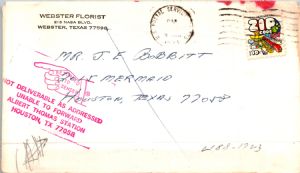 WEBSTER FLORIST
WEBSTER, TEXAS 77598
ZIP
CODE
MR. J. E BOBBITT
MERMAID
HOUSTON, TEXAS 77058
NOT DELIVERABLE AS ADDRESSED
UNABLE TO FORWARD
ALBERT THOMAS STATION
HOUSTON, TX 77058
488-1723